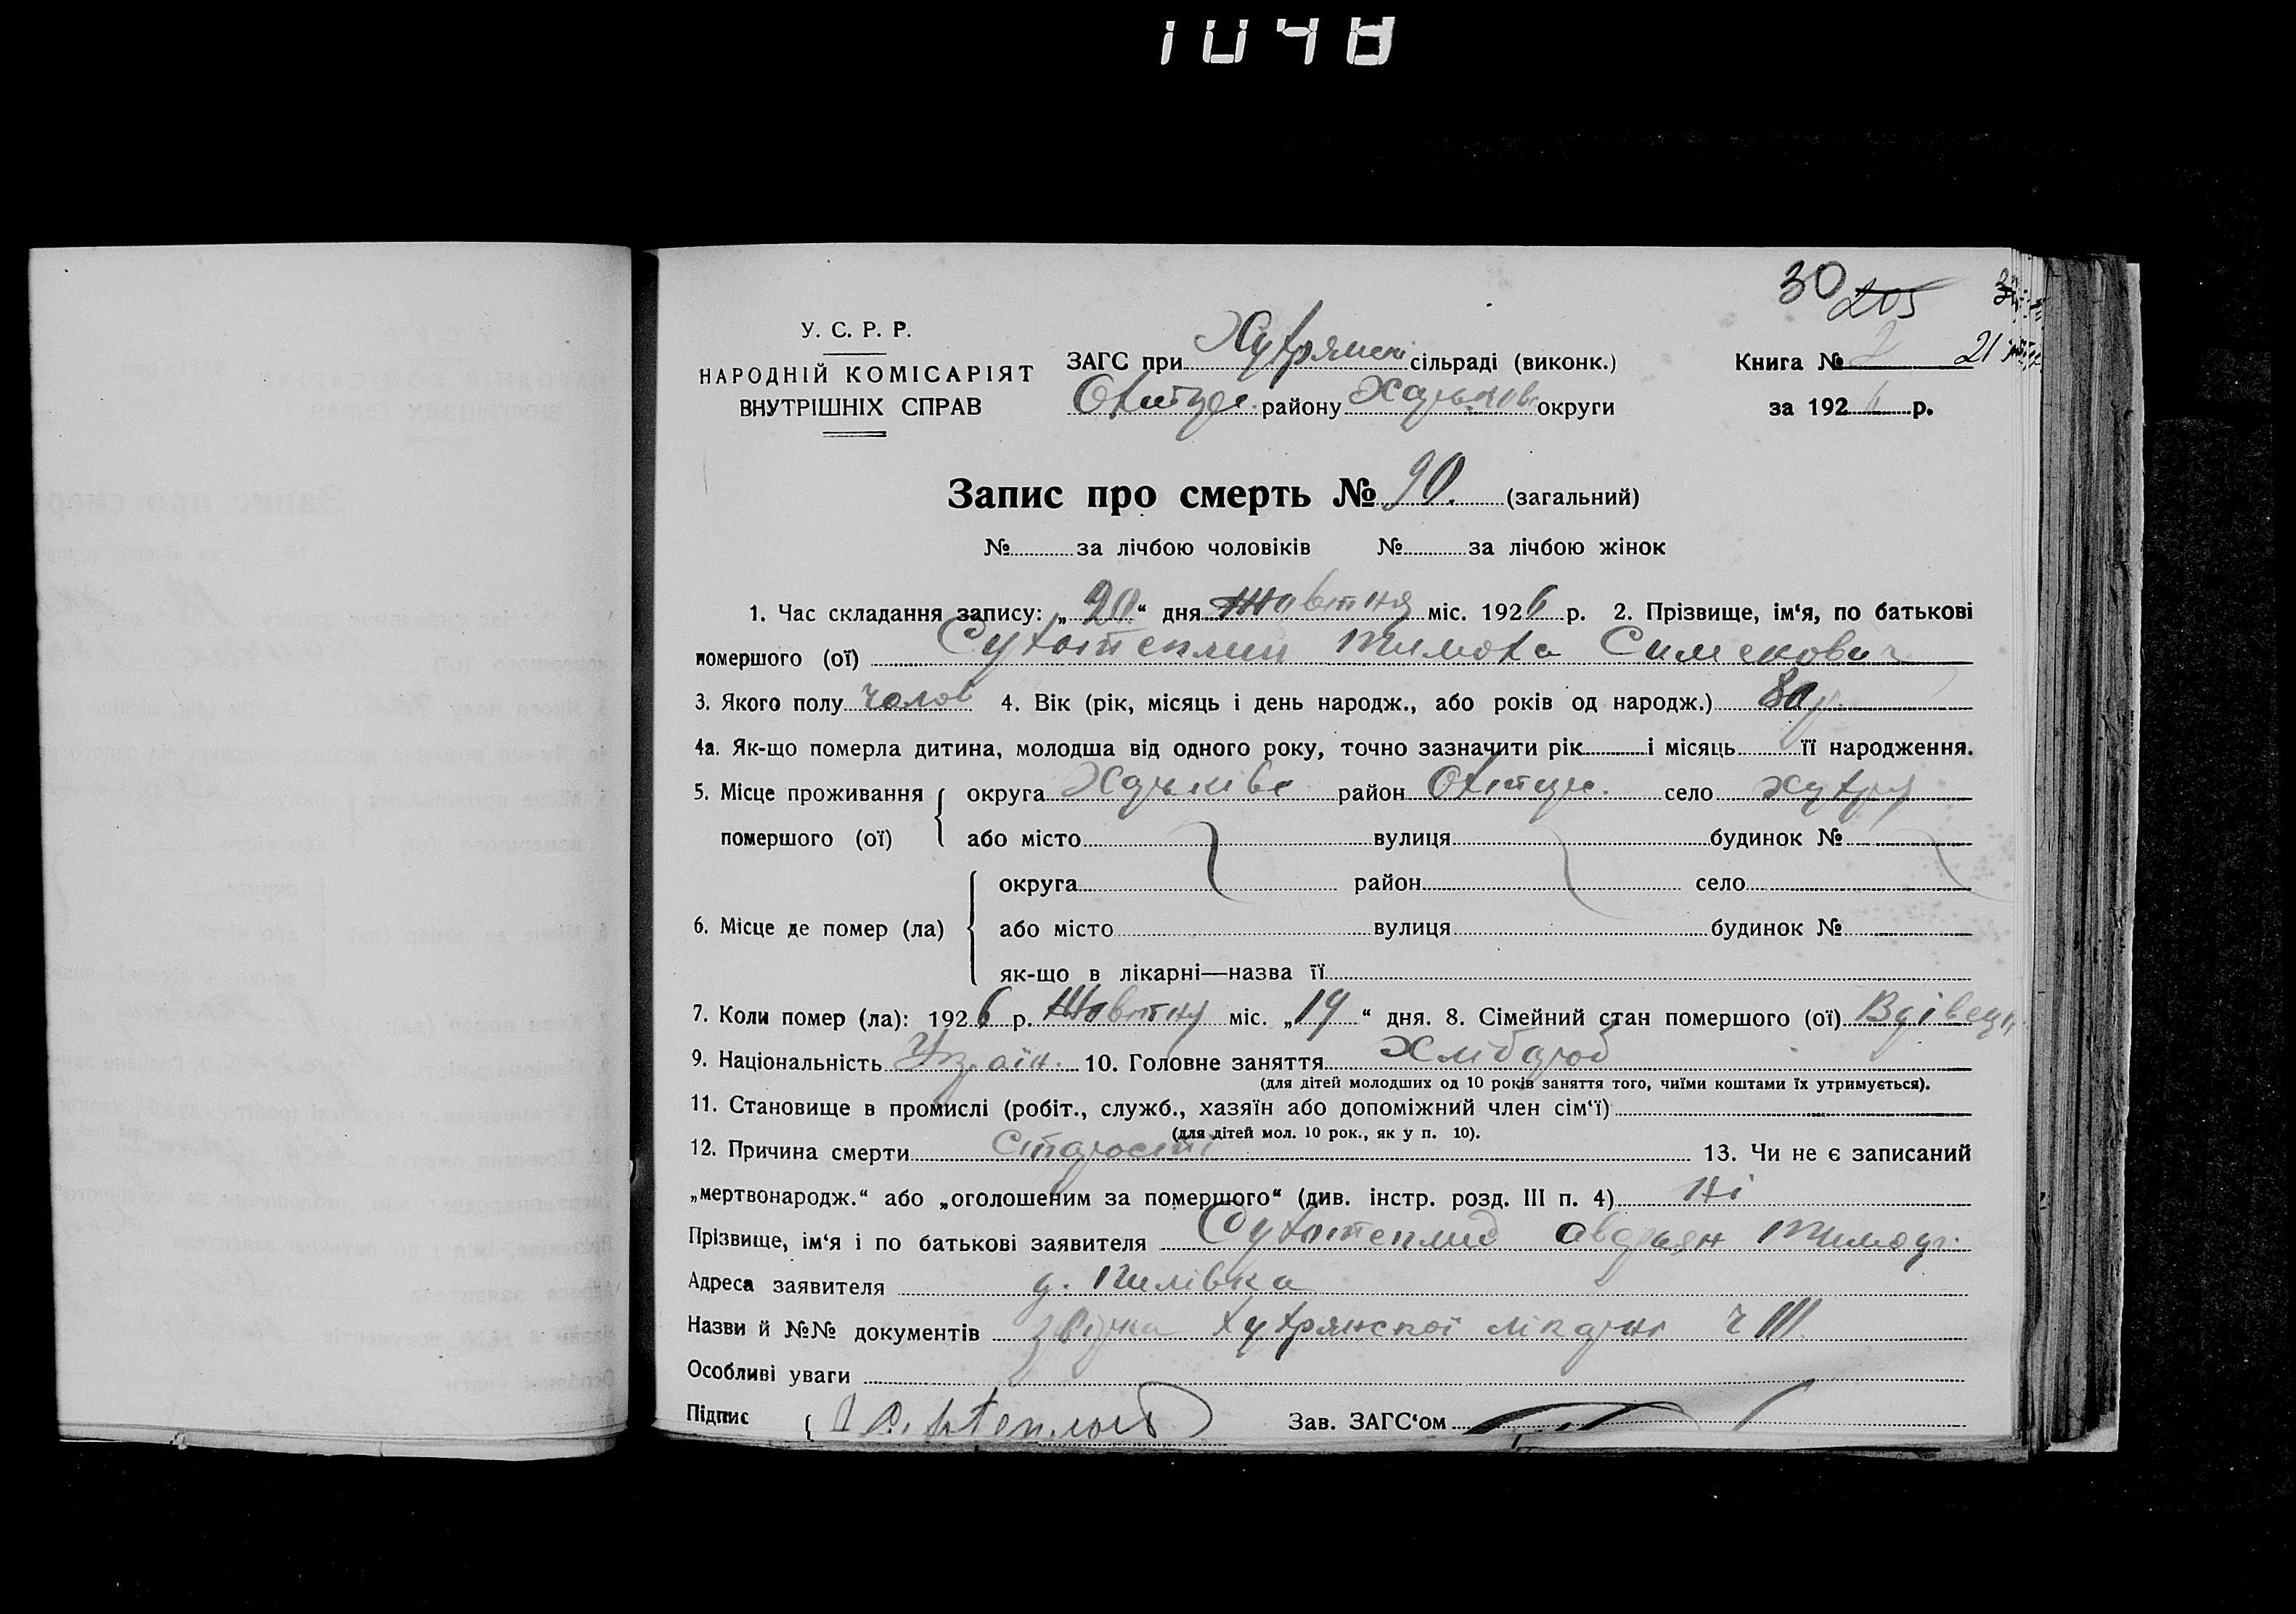 1048
30 205
У. С. Р. Р.
НАРОДНІЙ КОМІСАРІЯТ
ВНУТРІШНІХ СПРАВ
ЗАГС при сільраді (виконк.)
району Харьков округи
Книга № 2
за 1926 р.
Запис про смерть № 90. (загальний)
№ за лічбою чоловіків № за лічбою жінок
1. Час складання запису: „20“ дня Жовтня міс. 1926 р. 2. Прізвище, ім‘я, по батькові
помершого (ої) Тимоха
3. Якого полу чолов 4. Вік (рік, місяць і день народж., або років од народж.) 80 р.
4а. Як-що померла дитина, молодша від одного року, точно зазначити рік і місяць її народження.
5. Місце проживання помершого (ої) { округа Харьківс район село
або місто вулиця будинок №
6. Місце де помер (ла) { округа район село
або місто вулиця будинок №
як-що в лікарні—назва її
7. Коли помер (ла): 1926 р. Жовтня міс. „19“ дня. 8. Сімейний стан помершого (ої) Вдівець
9. Національність Україн. 10. Головне заняття Хлібороб
(для дітей молодших од 10 років заняття того, чиїми коштами їх утримується).
11. Становище в промислі (робіт., служб., хазяїн або допоміжний член сім‘ї)
(для дітей мол. 10 рок., як у п. 10).
12. Причина смерти Старости 13. Чи не є записаний
„мертвонародж.“ або „оголошеним за помершого“ (див. інстр. розд. III п. 4) Ні
Прізвище, ім‘я і по батькові заявителя
Адреса заявителя
Назви й №№ документів
Особливі уваги
Підпис { Зав. ЗАГС‘ом